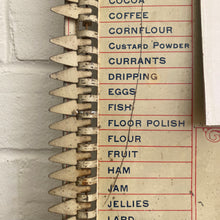 COCOA
COFFEE
CORNFLOUR
CUSTARD POWDER
CURRANTS
DRIPPING
EGGS
FISH
FLOOR POLISH
FLOUR
FRUIT
HAM
JAM
JELLIES
LARD